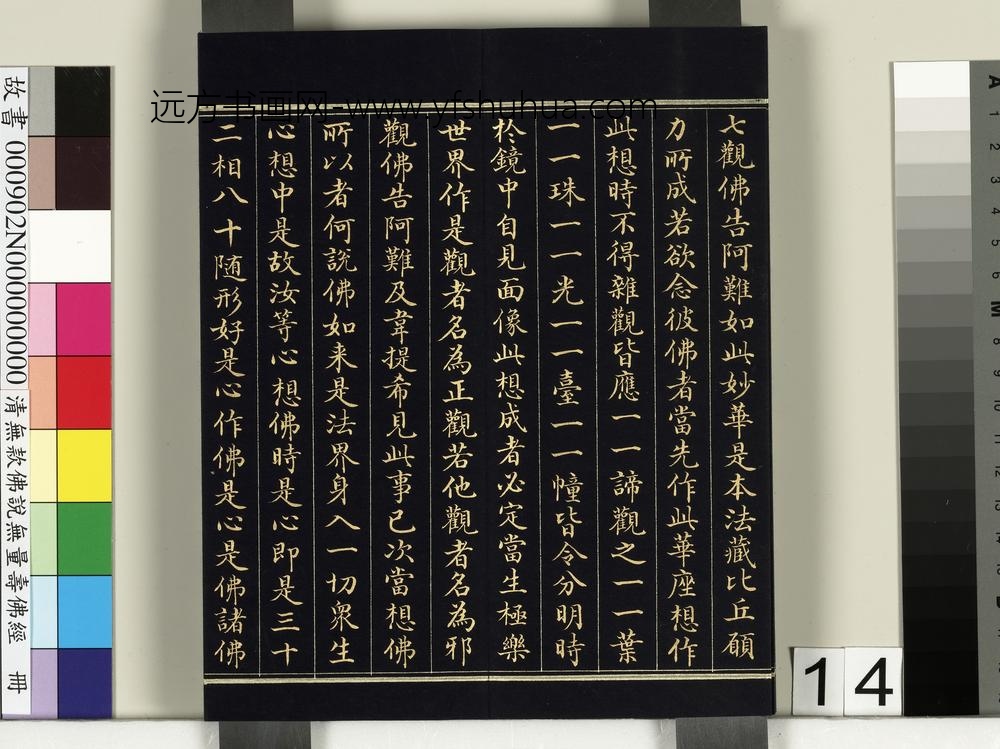 七觀佛告阿難如此妙華是本法藏比丘願
力所成若欲念彼佛者當先作此華座想作
此想時不得雜觀皆應一一諦觀之一一葉
一一珠一一光一一臺一一幢皆令分明時
於鏡中自見面像此想成者必定當生極樂
世界作是觀者名為正觀若他觀者名為邪
觀佛告阿難及韋提希見此事已次當想佛
所以者何說佛如来是法界身入一切衆生
心想中是故汝等心想佛時是心即是三十
二相八十随形好是心作佛是心是佛諸佛
远方书画网-www.yfshuhua.com
故書 000902N000000000 清無款佛說無量壽佛經 冊
14
A 1 2 3 4 5 6 M 8 9 10 11 12 13 14 15